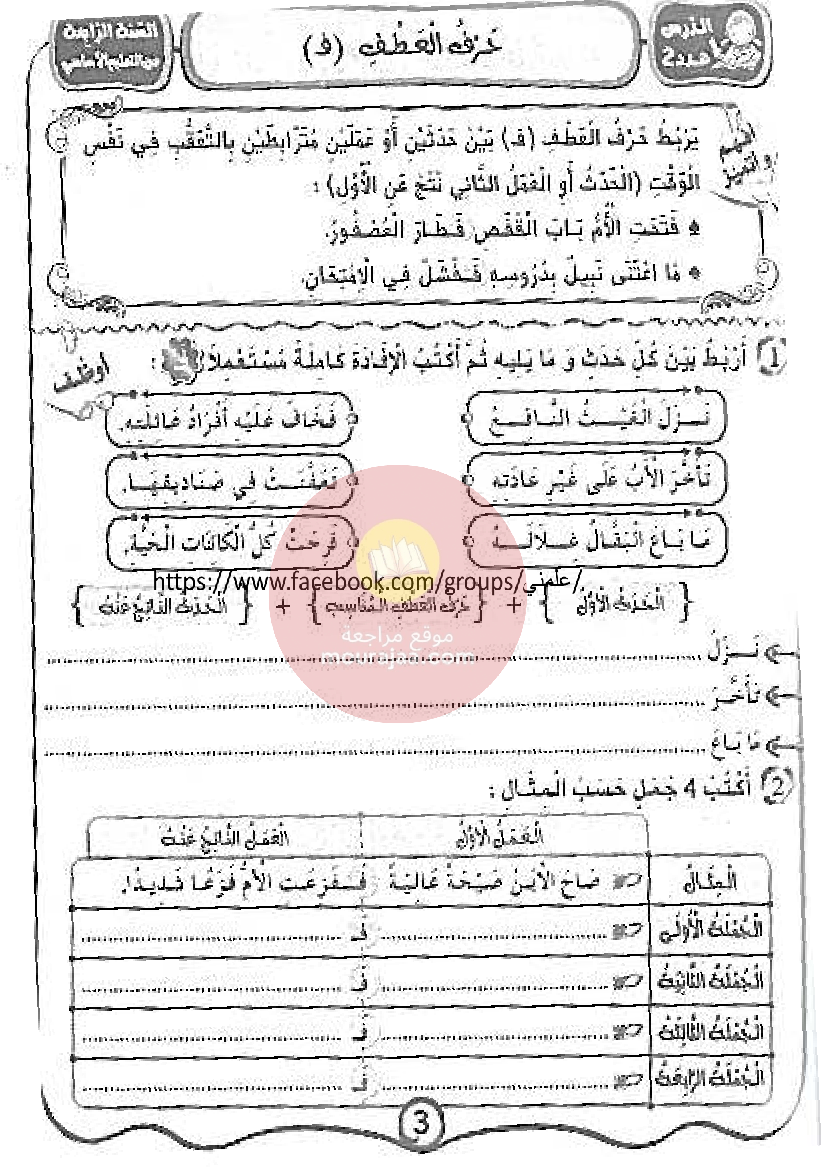 الدرس عدد 2
حَرْفُ الْعَطْفِ (فَ)
السنة الرابعة
من التعليم الأساسي
أفهم
و أتميز
يَرْبُطُ حَرْفُ الْعَطْفِ (فَ) بَيْنَ حَدَثَيْنِ أَوْ عَمَلَيْنِ مُتَرَابِطَيْنِ بِالتَّعَقُّبِ فِي نَفْسِ
الْوَقْتِ (الْحَدَثُ أَوِ الْعَمَلُ الثَّانِي نَتَجَ عَنِ الْأَوَّلِ) :
* فَتَحَتِ الْأُمُّ بَابَ الْقَفَصِ فَطَارَ الْعُصْفُورُ.
* مَا اعْتَنَى نَبِيلٌ بِدُرُوسِهِ فَفَشَلَ فِي الْاِمْتِحَانِ.
أوظف
1 أَرْبُطُ بَيْنَ كُلِّ حَدَثٍ وَ مَا يَلِيهِ ثُمَّ أَكْتُبُ الْإِفَادَةَ كَامِلَةً مُسْتَعْمِلاً :
نَزَلَ الْغَيْثُ النَّافِعُ
فَخَافَ عَلَيْهِ أَفْرَادُ عَائِلَتِهِ.
تَأَخَّرَ الْأَبُ عَلَى غَيْرِ عَادَتِهِ
تَعَفَّنَتْ فِي صَنَادِيقِهَا.
مَا بَاعَ الْبَقَّالُ غِلَالَهُ
فَرِحَتْ كُلُّ الْكَائِنَاتِ الْحَيَّةِ.
https://www.facebook.com/groups/علمني/
{ الْحَدَثُ الْأَوَّلُ } + { حَرْفُ الْعَطْفِ الْمُنَاسِبِ } + { الْحَدَثُ النَّاتِجُ عَنْهُ }
موقع مراجعة
mourajaa.com
نَزَلَ
تَأَخَّرَ
مَا بَاعَ
2 أَكْتُبُ 4 جُمَلٍ حَسَبَ الْمِثَالِ :
الْعَمَلُ الْأَوَّلُ الْعَمَلُ النَّاتِجُ عَنْهُ
الْمِثَالُ صَاحَ الْاِبْنُ صَيْحَةً عَالِيَةً فَفَزِعَتِ الْأُمُّ فَزَعًا شَدِيدًا.
الْجُمْلَةُ الْأُولَى فَ
الْجُمْلَةُ الثَّانِيَةُ فَ
الْجُمْلَةُ الثَّالِثَةُ فَ
الْجُمْلَةُ الرَّابِعَةُ فَ
3